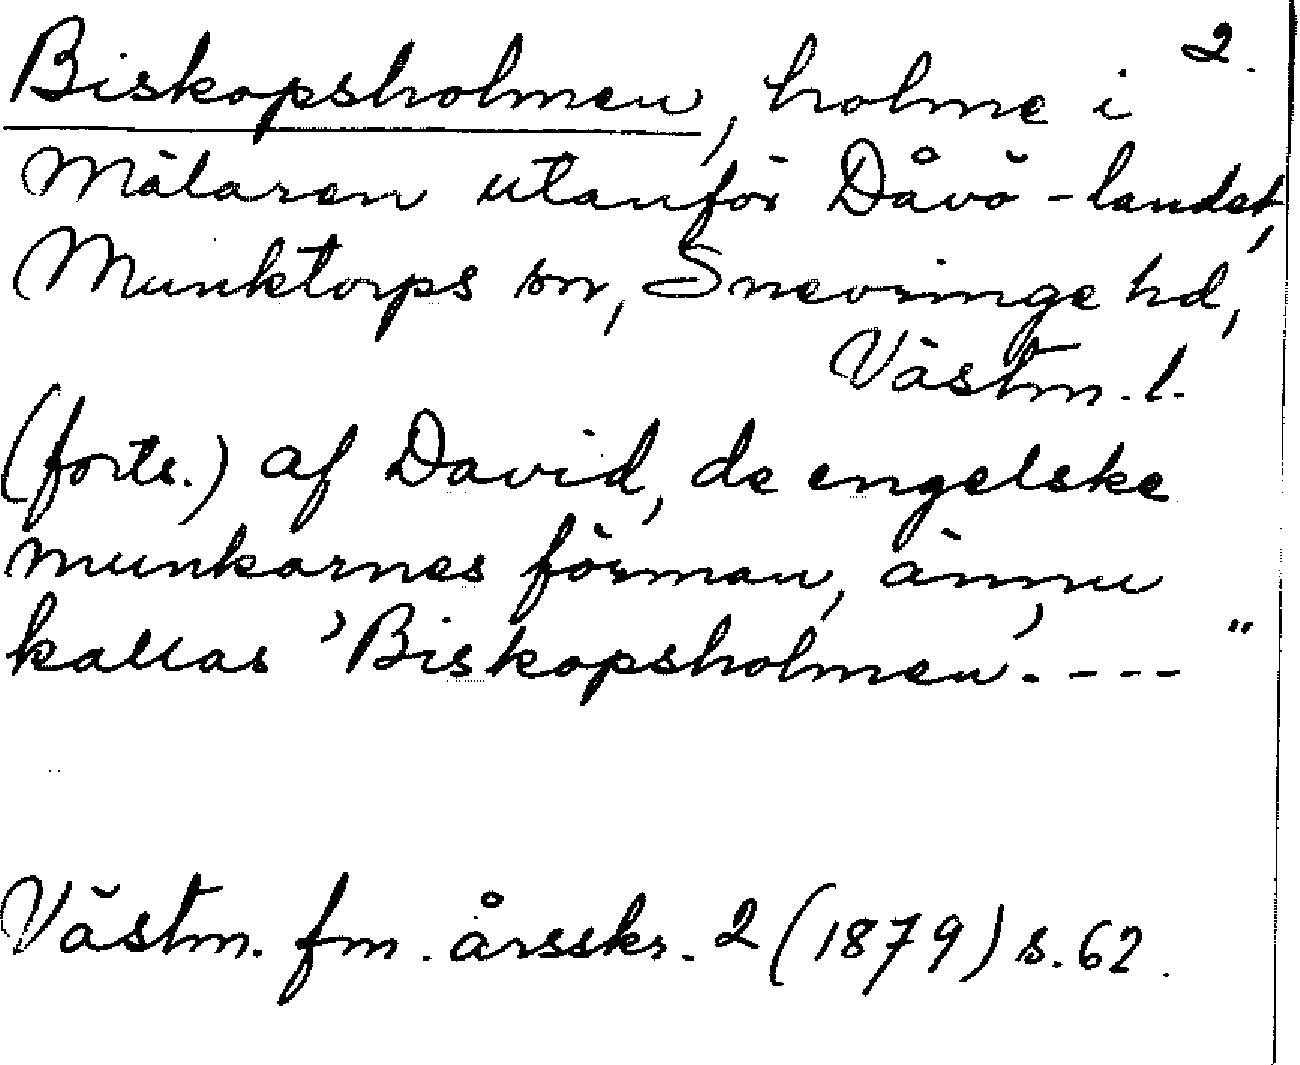 2.
Biskopsholmen, holme i
Mälaren utanför Dåvö-landet,
Munktorps sn, Snevringe hd,
Västm. l.
(forts.) af David, de engelske
munkarnes förman, ännu
kallas 'Biskopsholmen'. ---- "
Västm. fm. årsskr. 2 (1879) s. 62.